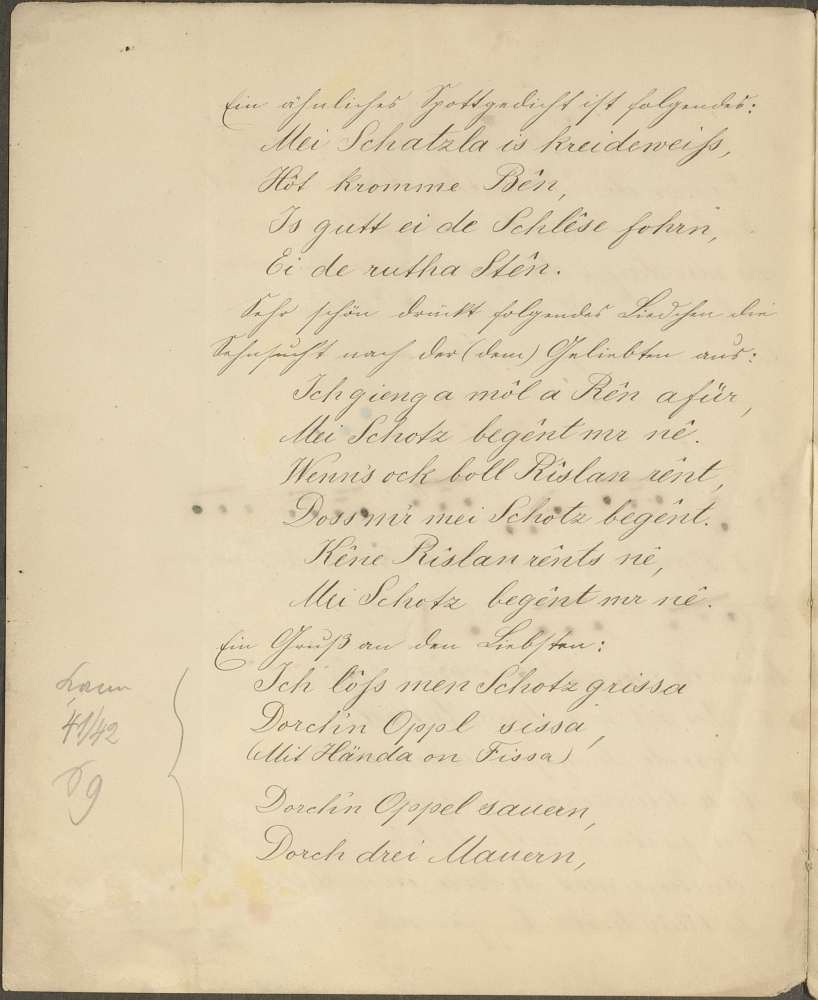 Ein ähnliches Spottgedicht ist folgendes:
Mei Schatzla is kreideweiss,
Hôt kromme Bên,
Is gutt ei de Schlêse fohrn,
Ei de rutha Stên.
Sehr schön drückt folgendes Liedchen die
Sehnsucht nach der (dem) Geliebten aus:
Ich gieng a môl a Rên afür,
Mei Schotz begênt mr nê.
Wenn's ock boll Rîslan rênt,
Doss mr mei Schotz begênt.
Kêne Rîslan rênts nê,
Mei Schotz begênt mr nê.
Ein Gruß an den Liebsten:
Ich lôss men Schotz grissa
Dorch'n Oppl sissa,
(Mit Hända on Fissa)
Dorch'n Oppel sauern,
Dorch drei Mauern,
41/42
69